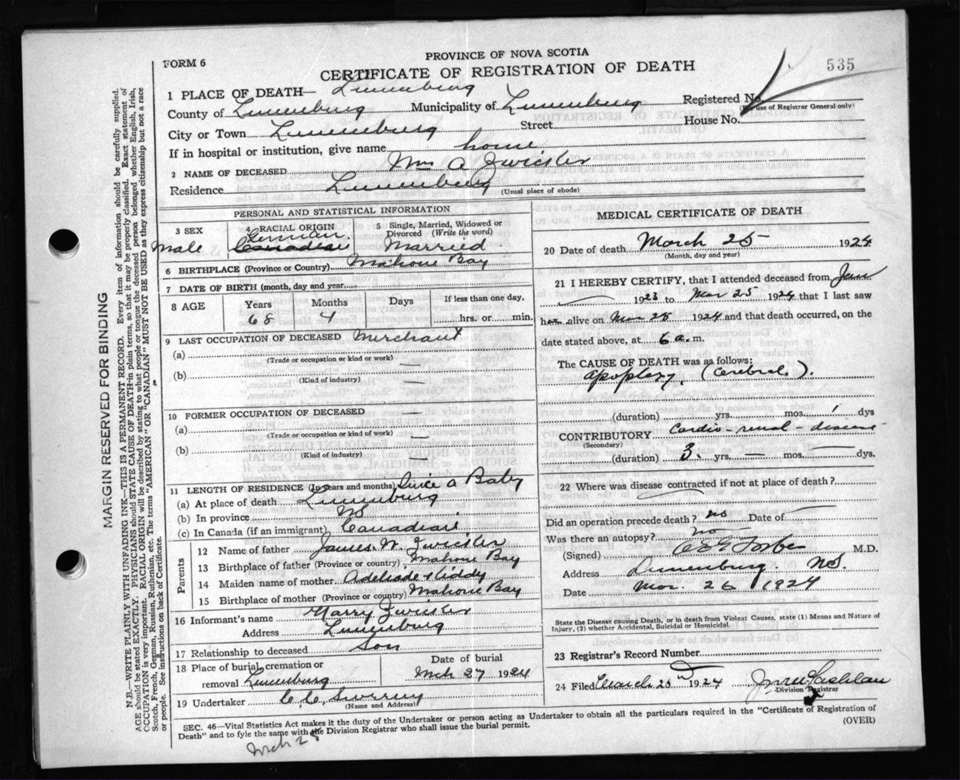 FORM 6
PROVINCE OF NOVA SCOTIA
CERTIFICATE OF REGISTRATION OF DEATH
535
1 PLACE OF DEATH— Lunenburg
County of Lunenburg Municipality of Lunenburg Registered No.
(For use of Registrar General only)
City or Town Lunenburg Street House No.
If in hospital or institution, give name home
2 NAME OF DECEASED Wm A Zwicker
Residence Lunenburg (Usual place of abode)
PERSONAL AND STATISTICAL INFORMATION
3 SEX Male
4 RACIAL ORIGIN German Canadian
5 Single, Married, Widowed or Divorced (Write the word) Married
6 BIRTHPLACE (Province or Country) Mahone Bay
7 DATE OF BIRTH (month, day and year)
8 AGE Years Months Days If less than one day,
68 4 hrs. or min.
9 LAST OCCUPATION OF DECEASED Merchant
(a) —
(Trade or occupation or kind or work)
(b) —
(Kind of industry)
10 FORMER OCCUPATION OF DECEASED —
(a) —
(Trade or occupation or kind of work)
(b)
(Kind of industry)
11 LENGTH OF RESIDENCE (In years and months) Since a Baby
(a) At place of death Lunenburg
(b) In province NS
(c) In Canada (if an immigrant) Canadian
Parents
12 Name of father James W. Zwicker
13 Birthplace of father (Province or country) Mahone Bay
14 Maiden name of mother Adelaide
15 Birthplace of mother (Province or country) Mahone Bay
16 Informant's name Harry Zwicker
Address Lunenburg
17 Relationship to deceased Son
18 Place of burial, cremation or removal Lunenburg
Date of burial Mch 27 1924
19 Undertaker C.C.
(Name and Address)
MEDICAL CERTIFICATE OF DEATH
20 Date of death March 25 1924
(Month, day and year)
21 I HEREBY CERTIFY, that I attended deceased from Jan
1923 to Mar 25 1924 that I last saw
alive on Mar 25 1924 and that death occurred, on the
date stated above, at 6 a.m.
The CAUSE OF DEATH was as follows:
Apoplexy, (Cerebral).
(duration) yrs. mos. 1 dys
CONTRIBUTORY Cardio-renal-disease
(Secondary)
(duration) 3. yrs. — mos. — dys.
22 Where was disease contracted if not at place of death?
Did an operation precede death? no Date of —
Was there an autopsy? no
(Signed) Forbes M.D.
Address Lunenburg. NS.
Date Mar. 26 1924
State the Disease causing Death, or in death from Violent Causes, state (1) Means and Nature of
Injury, (2) whether Accidental, Suicidal or Homicidal.
23 Registrar's Record Number
24 Filed March 25 1924
Division Registrar
SEC. 46—Vital Statistics Act makes it the duty of the Undertaker or person acting as Undertaker to obtain all the particulars required in the "Certificate of Registration of
Death" and to fyle the same with the Division Registrar who shall issue the burial permit.
(OVER)
MARGIN RESERVED FOR BINDING
N.B.—WRITE PLAINLY WITH UNFADING INK—THIS IS A PERMANENT RECORD. Every item of information should be carefully supplied.
AGE should be stated EXACTLY. PHYSICIANS should STATE CAUSE OF DEATH in plain terms, so that it may be properly classified. Exact statement of
OCCUPATION is very important. RACIAL ORIGIN will be described by stating to what people or tongue the deceased person belonged whether English, Irish,
Scotch, French, German, Russian, Ruthenian, etc. The terms "AMERICAN" OR "CANADIAN" MUST NOT BE USED as they express citizenship but not a race
or people. See instructions on back of Certificate.